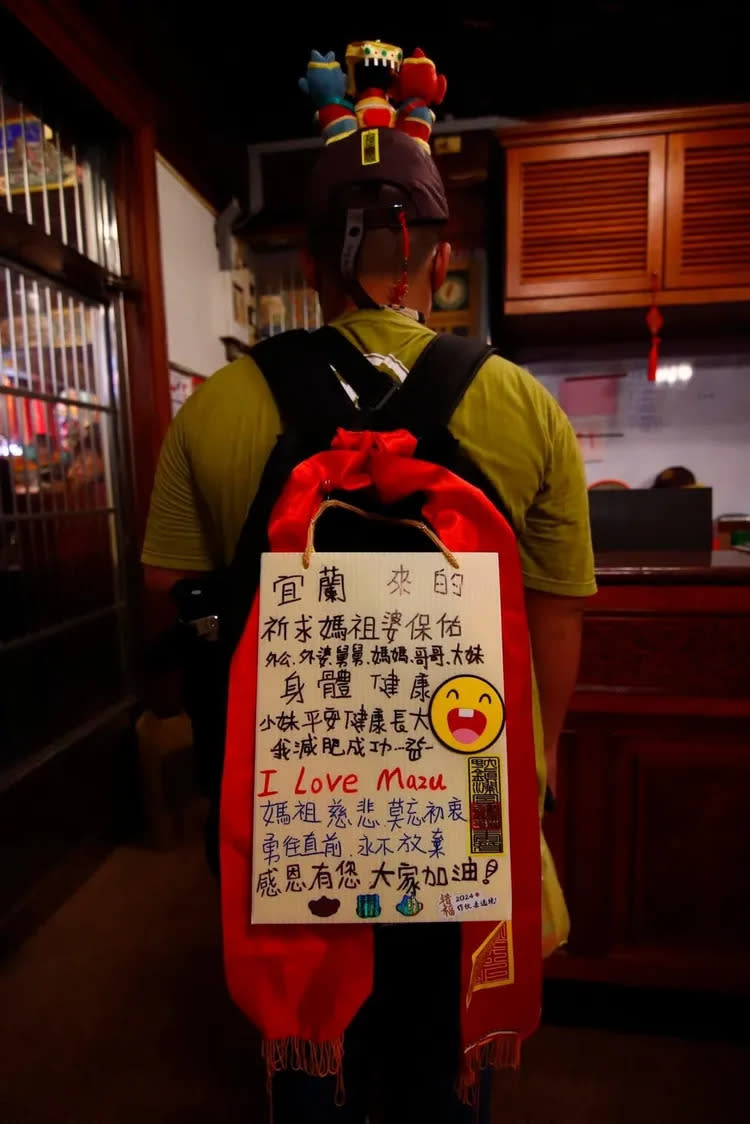 宜蘭 來的
祈求媽祖婆保佑
外公、外婆、舅舅、媽媽、哥哥、大妹
身體健康
小妹平安健康長大
我減肥成功
I Love Mazu
媽祖慈悲 莫忘初衷
勇往直前、永不放棄
感恩有您 大家加油!
2024年